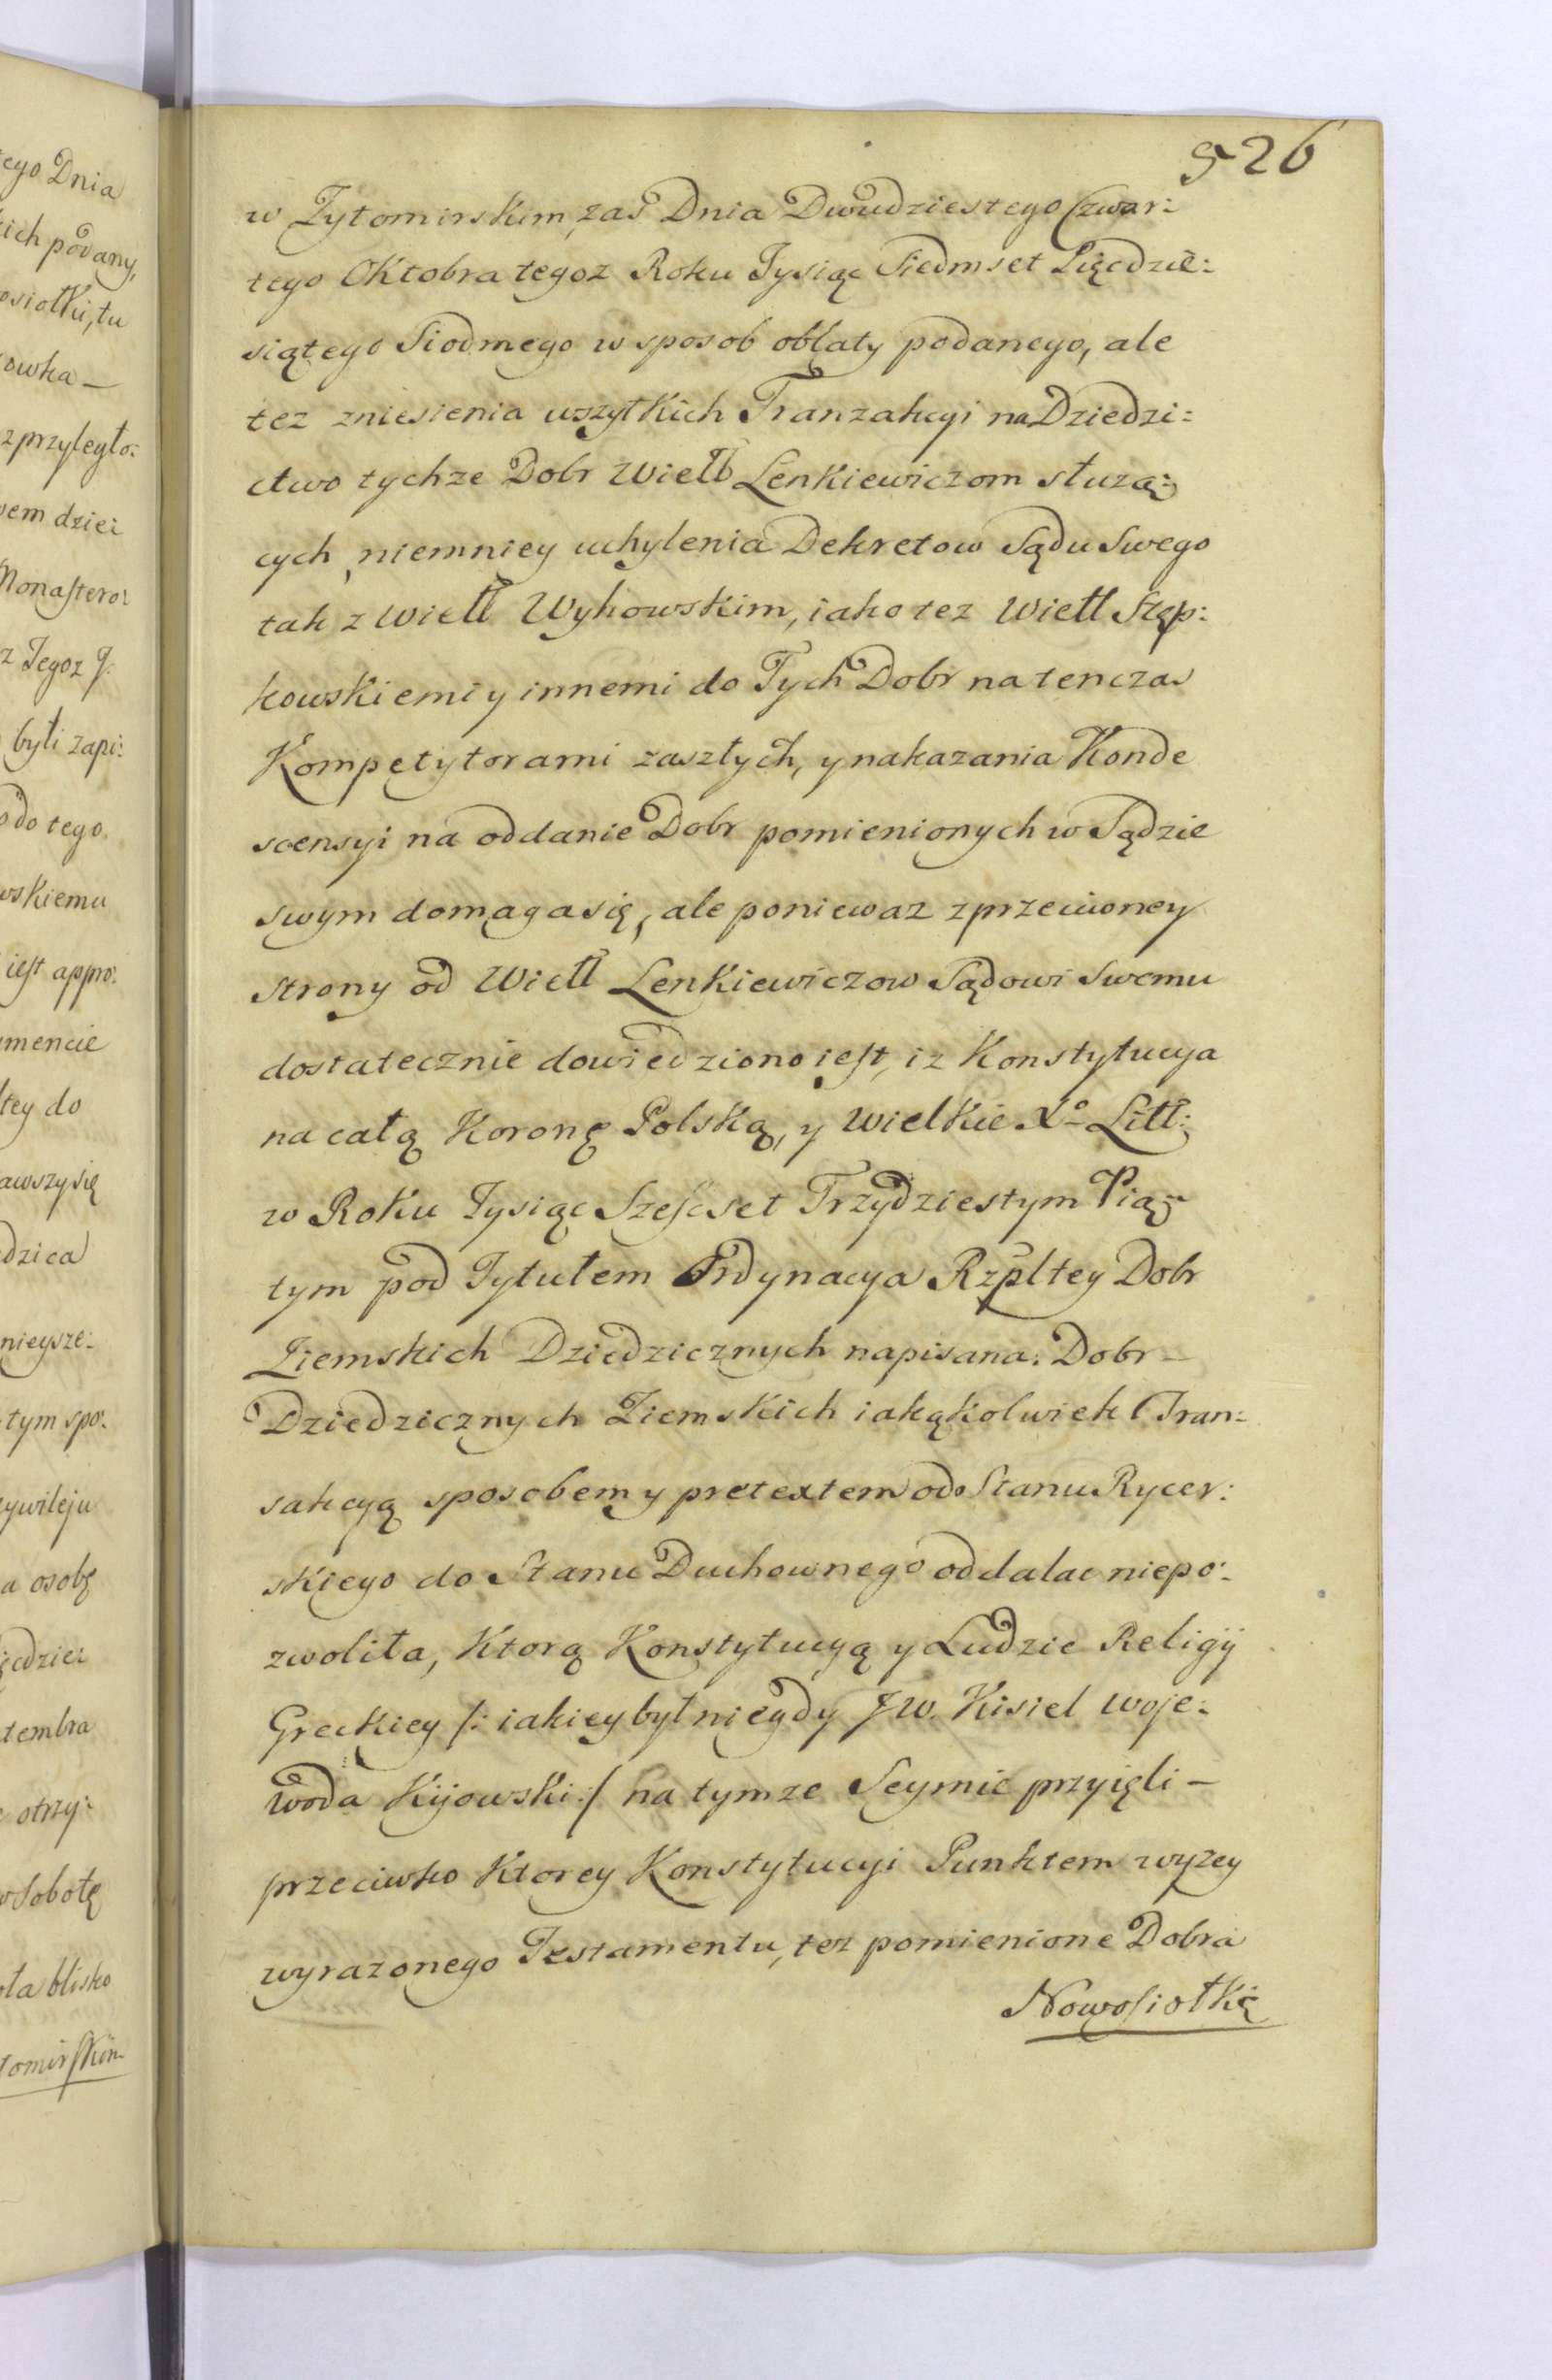 ego Dnia
ich podany,
osiołki, tu
owka —
z przyległo:
em dzie:
Monastero:
z Tegoz
byłi zapi:
do tego
wskiemu
iest appro:
mencie
tey do
awszysię
dzica
nieysze:
tym spo:
ywileju
a osobę
ędzie:
tembra
otrzy:
w Sobotę
ta blisko
tomirskim
526
w Zytomirskim, zas Dnia Dwudziestego Czwar:
tego Oktobra tegoz Roku Tysiąc Siedmset Pięcdzie:
siątego Siodmego w sposob obłaty podanego, ale
tez zniesienia wszytkich Tranzakcyi na Dziedzi:
ctwo tychze Dobr Wiell Lenkiewiczom słuzą:
cych, niemniey uchylenia Dekretow Sądu Swego
tak z Wiell Wyhowskim, iako tez Wiell Stęp:
kowskiemi y innemi do Tych Dobr natenczas
Kompetytorami zaszłych, y nakazania Konde
scensyi na oddanie Dobr pomienionych w Sądzie
swym domaga się, ale poniewaz z przeciwney
strony od Wiell Lenkiewiczow Sądowi Swemu
dostatecznie dowiedziono iest, iz Konstytucya
na całą Koronę Polską, y Wielkie Xo Litt:
w Roku Tysiąc Szescset Trzydziestym Pią:
tym pod Tytułem Ordynacya Rzpltey Dobr
Ziemskich Dziedzicznych napisana: Dobr —
Dziedzicznych Ziemskich iakąkolwiek Tran:
sakcyą sposobem y pretextem od Stanu Rycer:
skiego do Stanu Duchownego oddalac niepo:
zwoliła, Ktorą Konstytucyą y Ludzie Religij
Greckiey /: iakiey był niegdy JW. Kisiel Woje:
woda Kijowski :/ na tymze Seymie przyięli —
przeciwko Ktorey Konstytucyi Punktem wyzey
wyrazonego Testamentu, tez pomienione Dobra
Nowosiołki